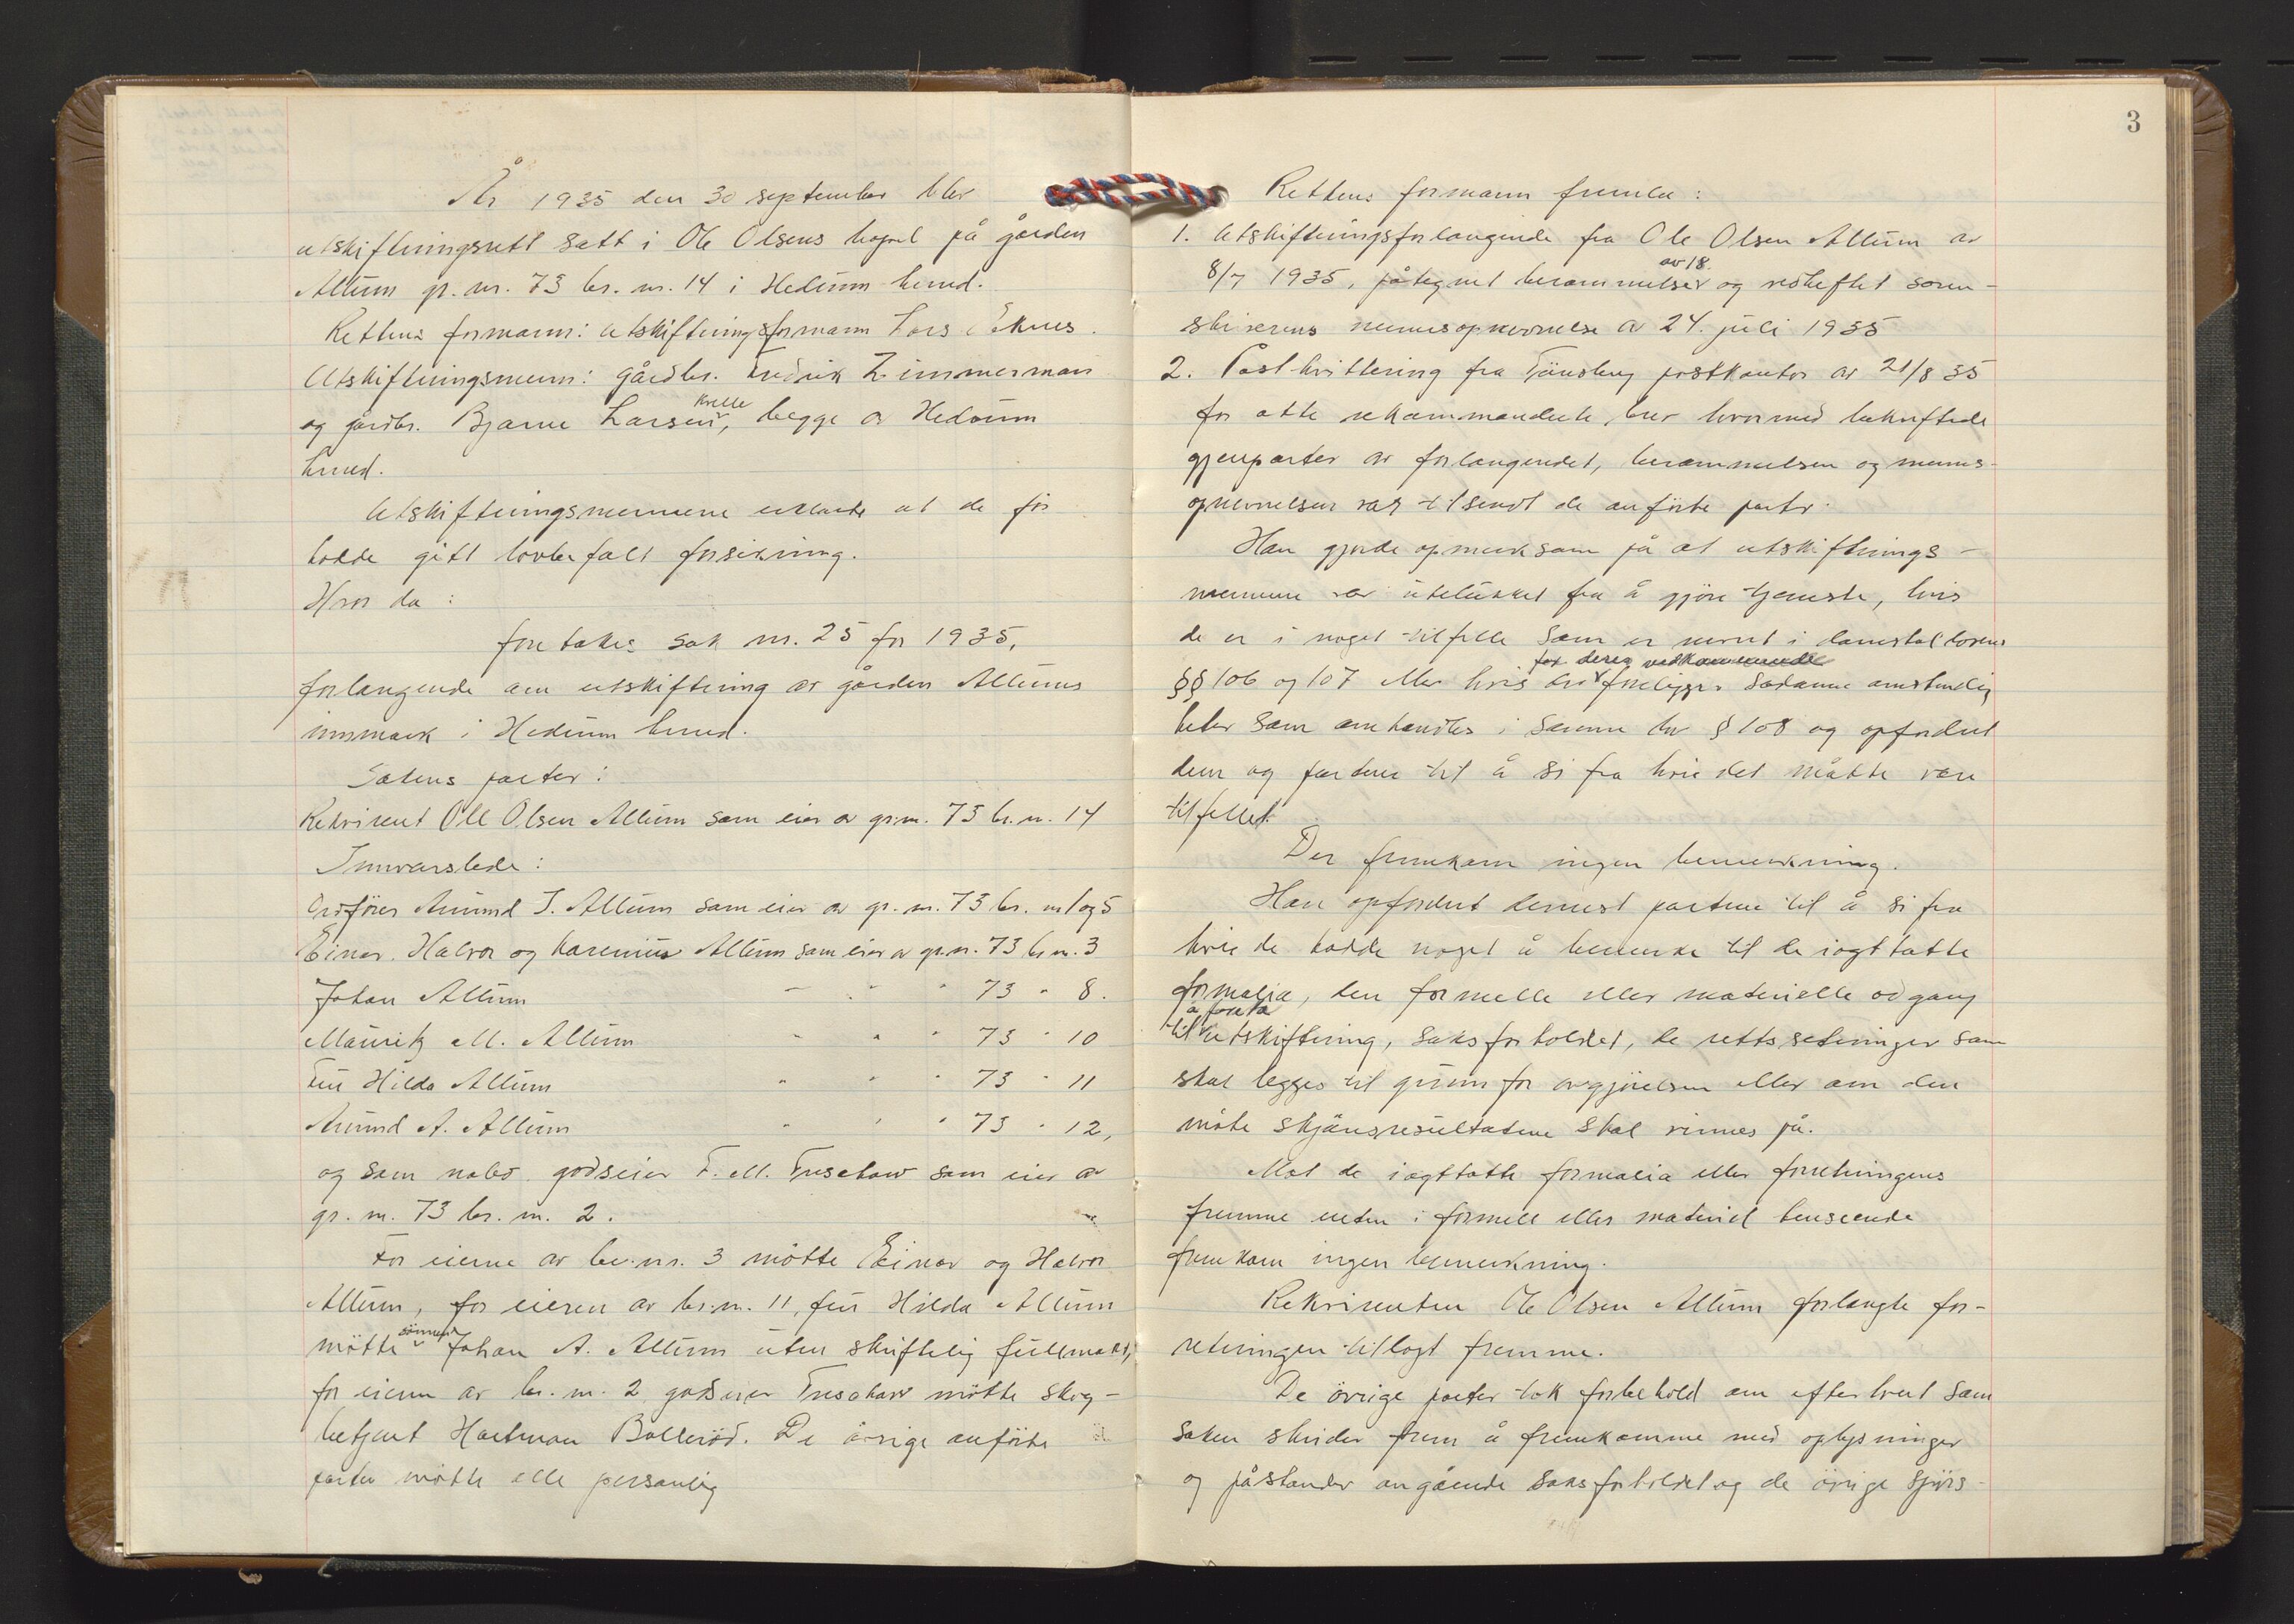 År 1935 den 30 september blev
utskiftningsrett satt i Ole Olsens bopel på gården
Allum gr. nr. 73 br. nr. 14 i Hedrum herred.
Rettens formann: utskiftningsformann Lars Eknes.
Utskiftningsmenn: gårdbr. Fredrik Zimmerman
og gårdbr. Bjarne Larsen Kvelle, begge av Hedrum
herred.
Utskiftningsmennene erklærte at de før
hadde gitt lovbefalt forsikring.
Hvor da:
foretokes sak nr. 25 for 1935,
forlangende om utskiftning av gården Allums
innmark i Hedrum herred.
Sakens parter:
Rekvirent Ole Olsen Allum som eier av gr.nr. 73 br. nr. 14
Innvarslede:
Ordfører Amund J. Allum som eier av gr. nr. 73 br. nr 1 og 5
Einar, Halvor og Karenius Allum som eier av gr. nr. 73 br nr. 3
Johan Allum - " " 73 " 8.
Mauritz M. Allum " " " 73 " 10
Fru Hilda Allum " " " 73 " 11
Amund A. Allum " " " 73 " 12,
og som nabo godseier F. M. Treschow som eier av
gr. nr. 73 br. nr. 2.
For eierne av br. nr. 3 møtte Einar og Halvor
Allum, for eieren av br. nr. 11, fru Hilda Allum
møtte sønnen Johan A. Allum uten skriftelig fullmakt,
for eieren av br. nr. 2 godseier Treschow møtte skog-
betjent Hartman Bollerød. De øvrige anførte
parter møtte alle personlig
3
Rettens formann fremla:
1. Utskiftningsforlangende fra Ole Olsen Allum av
8/7 1935, påtegnet berammelse av 18. og vedheftet soren-
skriverens mennsopnevnelse av 24. juli 1935
2. Postkvittering fra Tønsberg postkontor av 21/8 35
for otte rekommanderte brev hvormed bekreftede
gjenparter av forlangendet, berammelsen og menns-
opnevnelsen var tilsendt de anførte parter.
Han gjorde opmerksom på at utskiftnings-
mennene var utelukket fra å gjøre tjeneste, hvis
de er i noget tilfelle som er nevnt i domstollovens
§§ 106 og 107 eller hvis der for deres vedkommende foreligger sådanne omstendig
heter som omhandles i samme lov § 108 og opfordret
dem og partene til å si fra hvis det måtte være
tilfellet.
Der fremkom ingen bemerkning.
Han opfordret dernest partene til å si fra
hvis de hadde noget å bemerke til de iagttatte
formalia, den formelle eller materielle adgang
til å foreta utskiftning, saksforholdet, de rettssetninger som
skal legges til grunn for avgjørelsen eller om den
måte skjønsresultatene skal vinnes på.
Mot de iagttatte formalia eller forretningens
fremme enten i formell eller materiel henseende
fremkom ingen bemerkning.
Rekvirenten Ole Olsen Allum forlangte for-
retningen tillagt fremme.
De øvrige parter tok forbehold om efterhvert som
saken skrider frem å fremkomme med oplysninger
og påstander angående saksforholdet og de øvrige spørs-